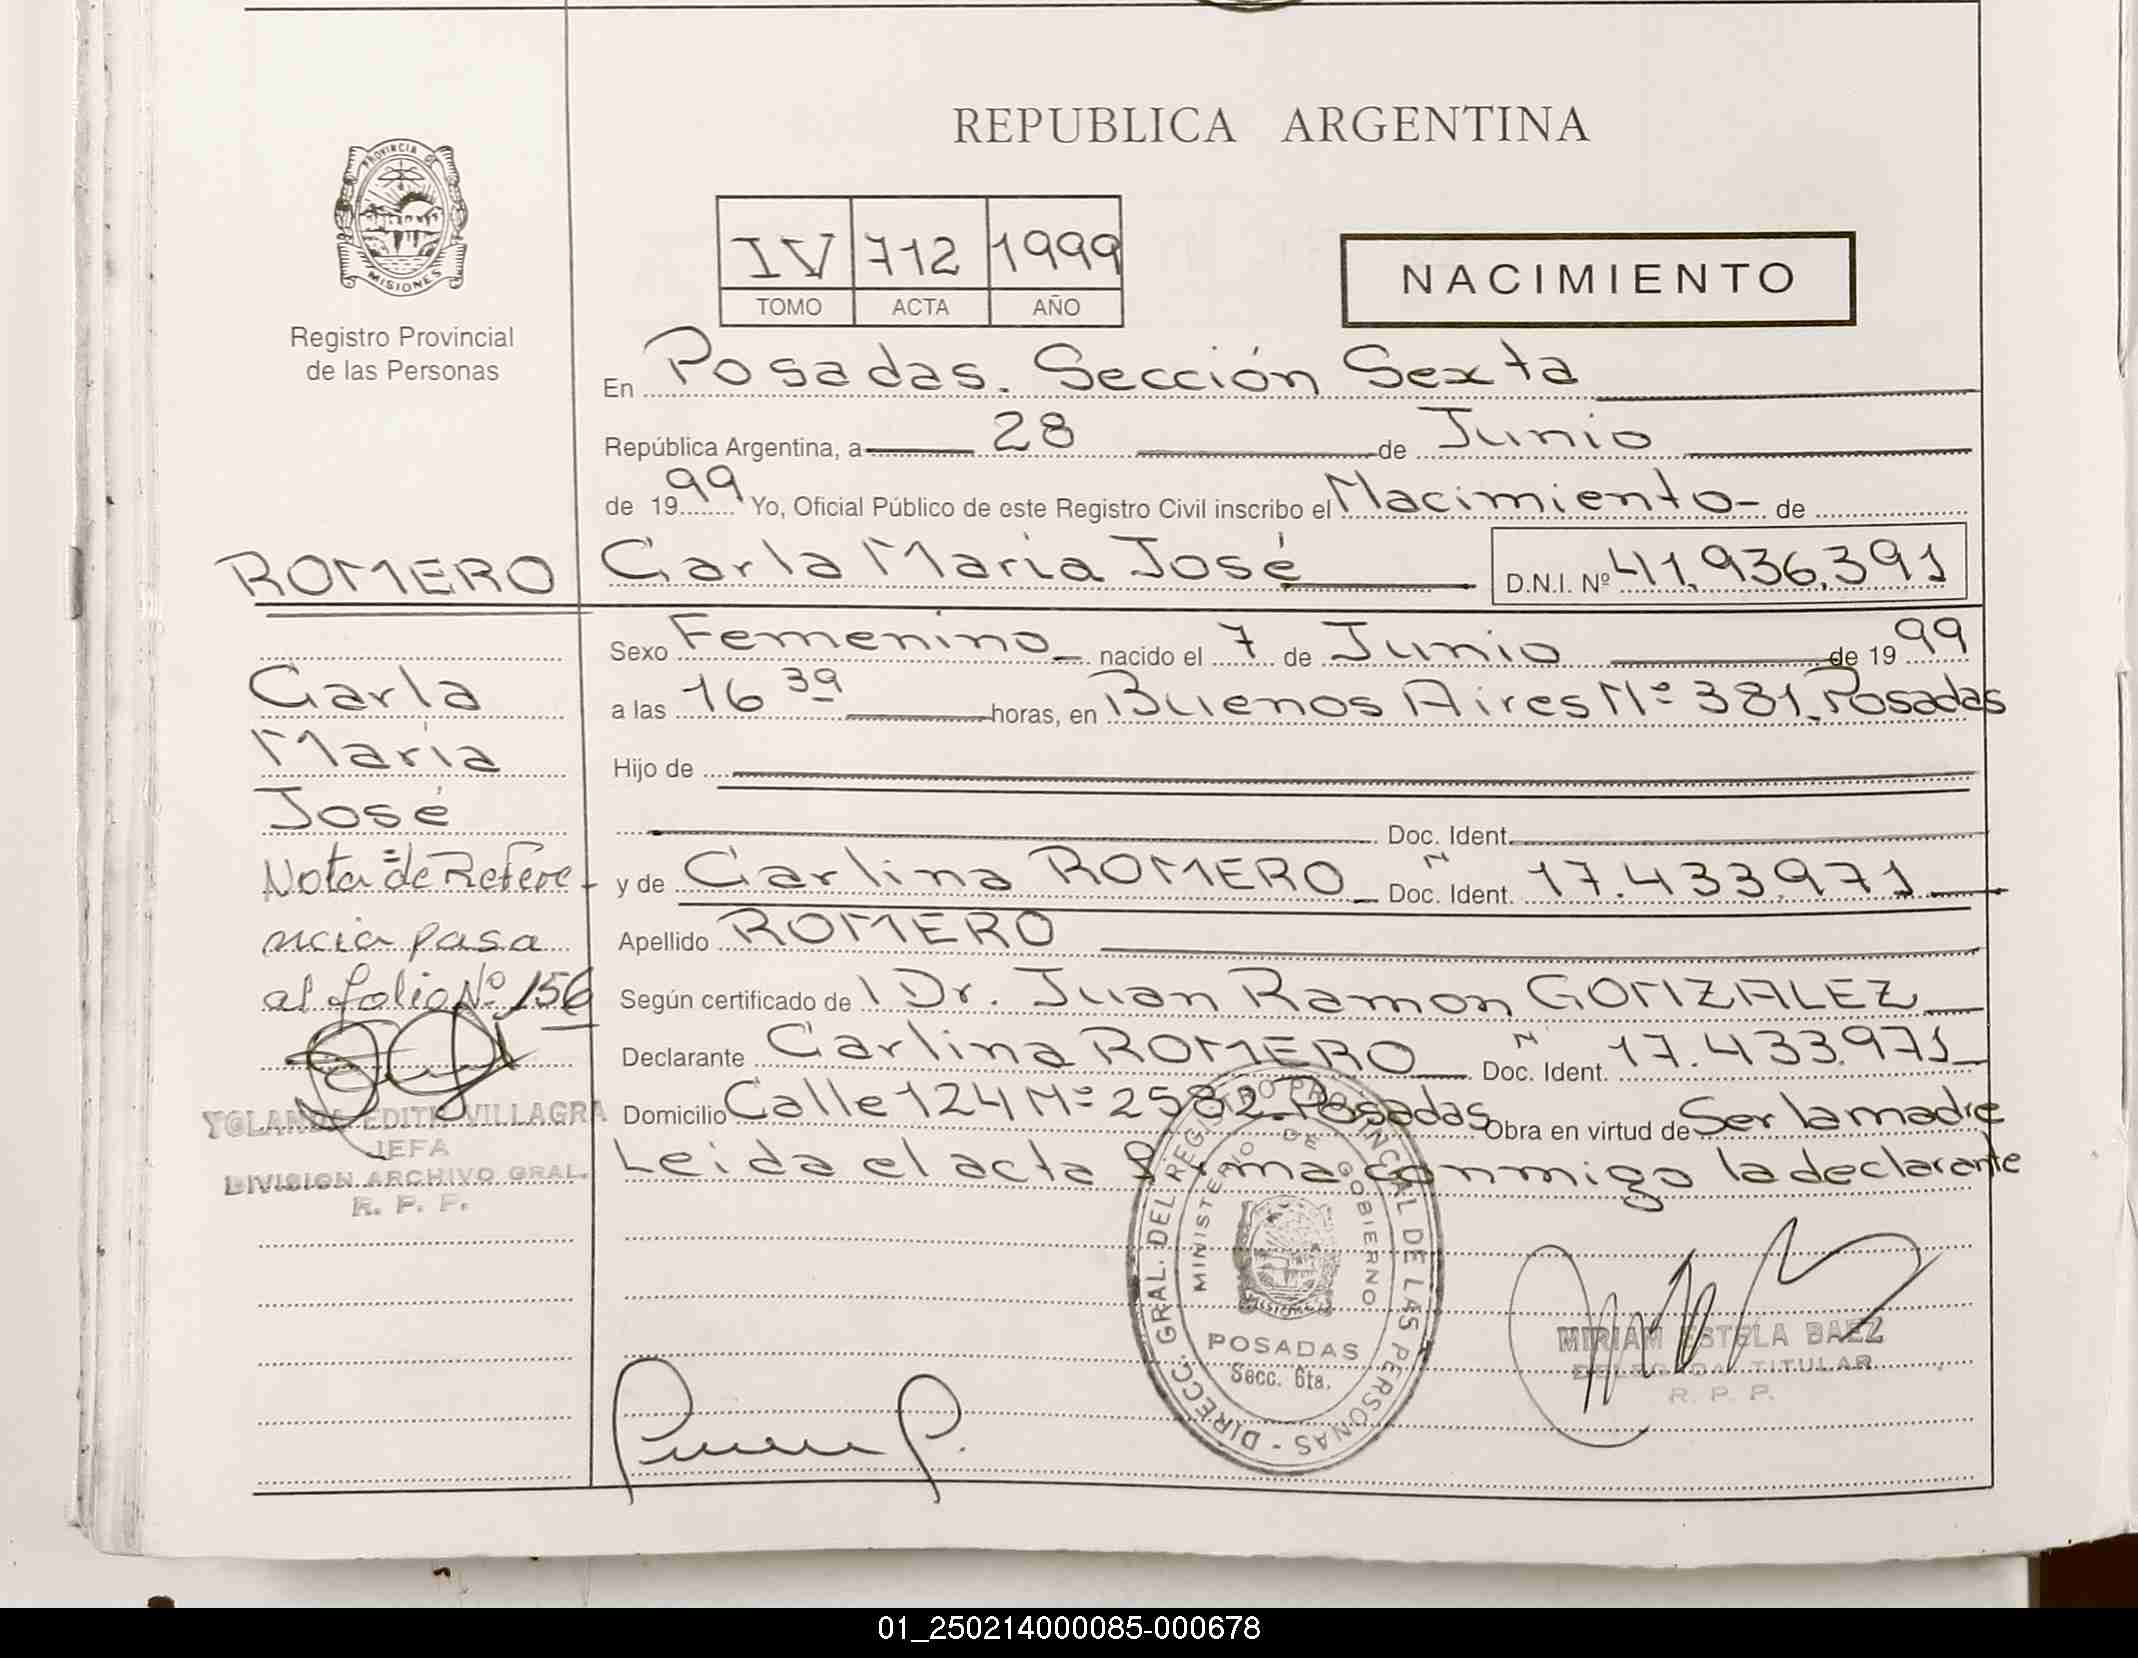 REPUBLICA ARGENTINA
PROVINCIA DE
MISIONES
Registro Provincial
de las Personas
IV 712 1999
TOMO ACTA AÑO
NACIMIENTO
En Posadas. Sección Sexta
República Argentina, a 28 de Junio
de 1999 Yo, Oficial Público de este Registro Civil inscribo el Nacimiento- de
ROMERO
Carla María José D.N.I. Nº 41.936.391
Sexo Femenino nacido el 7 de Junio de 1999
a las 16 39 horas, en Buenos Aires Nº 381. Posadas
Hijo de
Doc. Ident.
y de Carlina ROMERO Doc. Ident. N 17.433.971
Apellido ROMERO
Según certificado de Dr. Juan Ramon GONZALEZ
Declarante Carlina ROMERO Doc. Ident. N 17.433.971
Domicilio Calle 124 Nº 2582. Posadas Obra en virtud de Ser la madre
Leida el acta firma conmigo la declarante
Carla
María
José
Nota=de Refere-
ncia pasa
al folio Nº 156
YOLANDA EDITH VILLAGRA
JEFA
DIVISION ARCHIVO GRAL.
R. P. P.
DIRECC. GRAL. DEL REGISTRO PROVINCIAL DE LAS PERSONAS -
MINISTERIO DE GOBIERNO
MISIONES
POSADAS
Secc. 6ta.
MIRIAM ESTELA BAEZ
DELEGADA TITULAR
R. P. P.
01_250214000085-000678